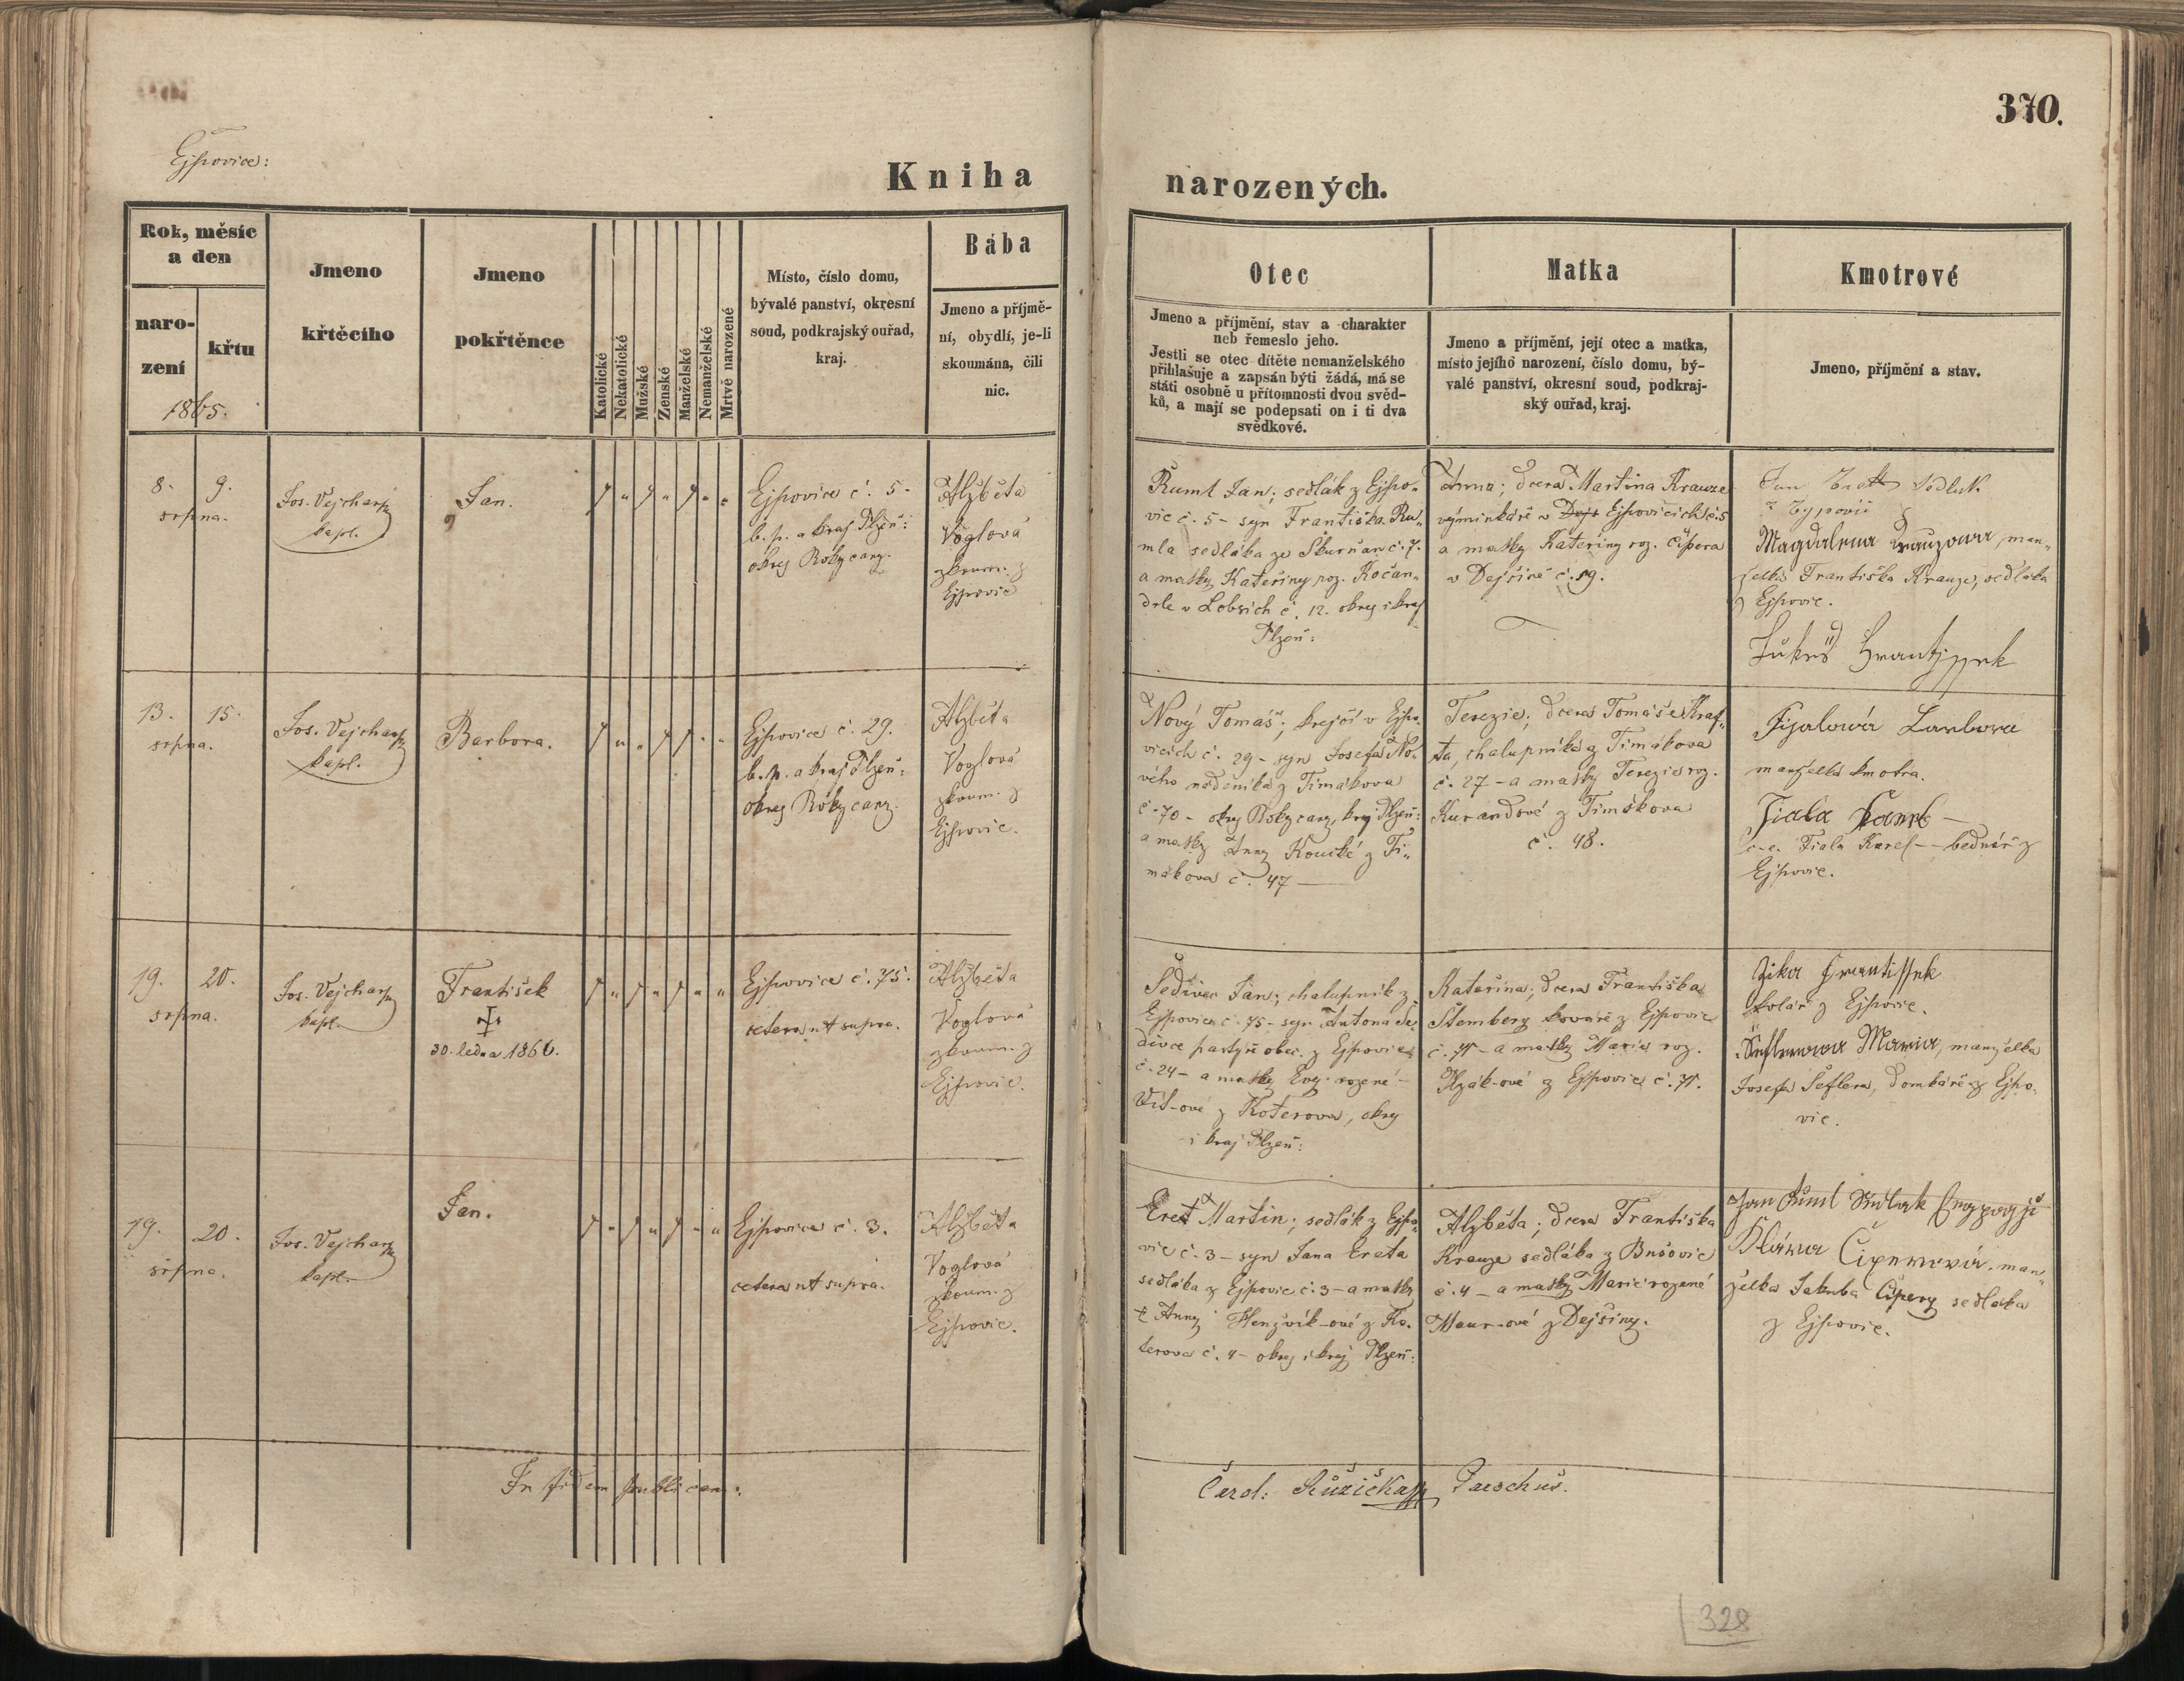 370.
Ejpovice:
Kniha narozených.
Rok, měsíc
a den
naro-
zení
křtu
1865.
Jmeno
křtěcího
Jmeno
pokřtěnce
Katolické
Nekatolické
Mužské
Ženské
Manželské
Nemanželské
Mrtvě narozené
Místo, číslo domu,
bývalé panství, okresní
soud, podkrajský ouřad,
kraj.
Bába
Jmeno a příjmě-
ní, obydlí, je-li
skoumána, čili
nic.
Otec
Jmeno a příjmění, stav a charakter
neb řemeslo jeho.
Jestli se otec dítěte nemanželského
přihlašuje a zapsán býti žádá, má se
státi osobně u přítomnosti dvou svěd-
ků, a mají se podepsati on i ti dva
svědkové.
Matka
Jmeno a příjmění, její otec a matka,
místo jejího narození, číslo domu, bý-
valé panství, okresní soud, podkraj-
ský ouřad, kraj.
Kmotrové
Jmeno, příjmění a stav.
8. 9.
srpna.
Jos. Vejchar
kapl.
Jan.
Ejpovice č. 5-
b. p. a kraj Plzeň:
okres Rokycany.
Alžběta
Voglová
zkoum. z
Ejpovic
Ruml Jan; sedlák z Ejpo-
vic č. 5 - syn Františka Ru-
mla sedláka ze Škurňan č. 7.
a matky Kateřiny roz. Kočan-
drle v Lobzích č. 12. okres i kraj
Plzeň:
Anna; dcera Martina Krauze
výminkáře v Ejpovicích č. 5
a matky Kateřiny roz. Čipera
v Dejšině č. 19.
Jan sedlak
z
Magdalena Krauzowa, man-
želka Františka Krauze, sedláka
z Ejpovic.
Lukeš Frantissek
13. 15.
srpna.
Jos. Vejchar
kapl.
Barbora.
Ejpovice č. 29.
b. p. a kraj Plzeň:
okres Rokycany.
Alžběta
Voglová
zkoum. z
Ejpovic.
Nový Tomáš; krejčí v Ejpo-
vicích č. 29 - syn Josefa No-
vého nádeníka z Timákova
č. 70 - okres Rokycany, kraj Plzeň:
a matky Anny Koucké z Ti-
mákova č. 47 -
Terezie; dcera Tomáše Kraf-
ta, chalupníka z Timákova
č. 27 - a matky Terezie roz.
Kurandové z Timákova
č. 48.
Fijalowá Barbora
manželka kmotra.
Fiala Karel -
c-e. Fiala Karel - bednář z
Ejpovic.
19. 20.
srpna.
Jos. Vejchar
kapl.
František
30. ledna 1866.
Ejpovice č. 75.
cetera ut supra.
Alžběta
Voglová
zkoum. z
Ejpovic.
Šedivec Jan; chalupník z
Ejpovic č. 75 - syn Antona Še-
divce pastýře obec. z Ejpovic
č. 24 - a matky Evy rozené
Vít-ové z Koterova, okres
i kraj Plzeň:
Kateřina; dcera Františka
Štemberg kováře z Ejpovic
č. 71 - a matky Marie roz.
Plzák-ové z Ejpovic č. 71.
Zika Frantissek
kolář z Ejpovic.
Šeflerowa Maria, manželka
Josefa Šeflera, domkáře z Ejpo-
vic.
19. 20.
srpna.
Jos. Vejchar
kapl.
Jan.
Ejpovice č. 3.
cetera ut supra.
Alžběta
Voglová
zkoum. z
Ejpovic.
Eret Martin; sedlák z Ejpo-
vic č. 3 - syn Jana Ereta
sedláka z Ejpovic č. 3 - a matky
Anny Henzvík-ové z Ko-
terova č. 4 - okres i kraj Plzeň:
Alžběta; dcera Františka
Krauze sedláka z Bušovic
č. 4 - a matky Marie rozené
Maur-ové z Dejšiny.
Jan Ruml Sedlak
Čiperová, man-
želka Jakuba Čipery sedláka
z Ejpovic.
In fidem publicam:
Carol: Růžička Parochus.
328